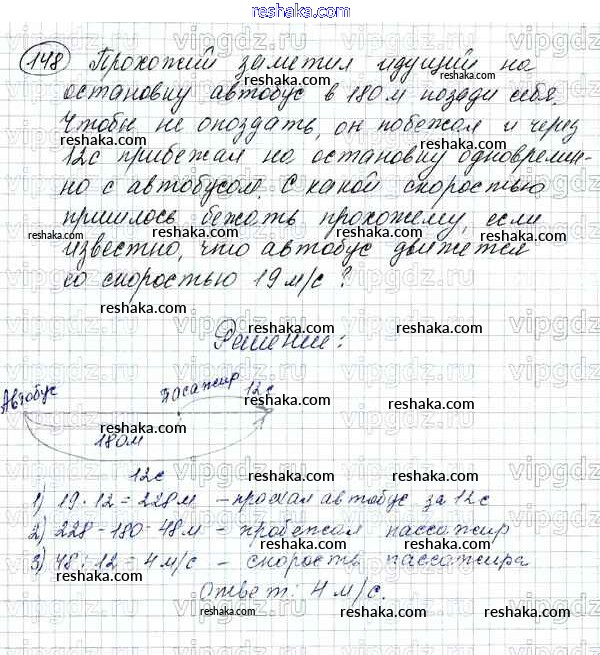 148 Прохожий заметил идущий на
остановку автобус в 180 м позади себя.
Чтобы не опоздать, он побежал и через
12с прибежал на остановку одновремен-
но с автобусом. С какой скоростью
пришлось бежать прохожему, если
известно, что автобус движется
со скоростью 19 м/с ?
Решение:
Автобус Пасажир 12с
180м
12с
1) 19 · 12 = 228 м - проехал автобус за 12с
2) 228 - 180 = 48 м - пробежал пассажир
3) 48 : 12 = 4 м/с - скорость пассажира
Ответ: 4 м/с.
reshaka.com
vipgdz.ru